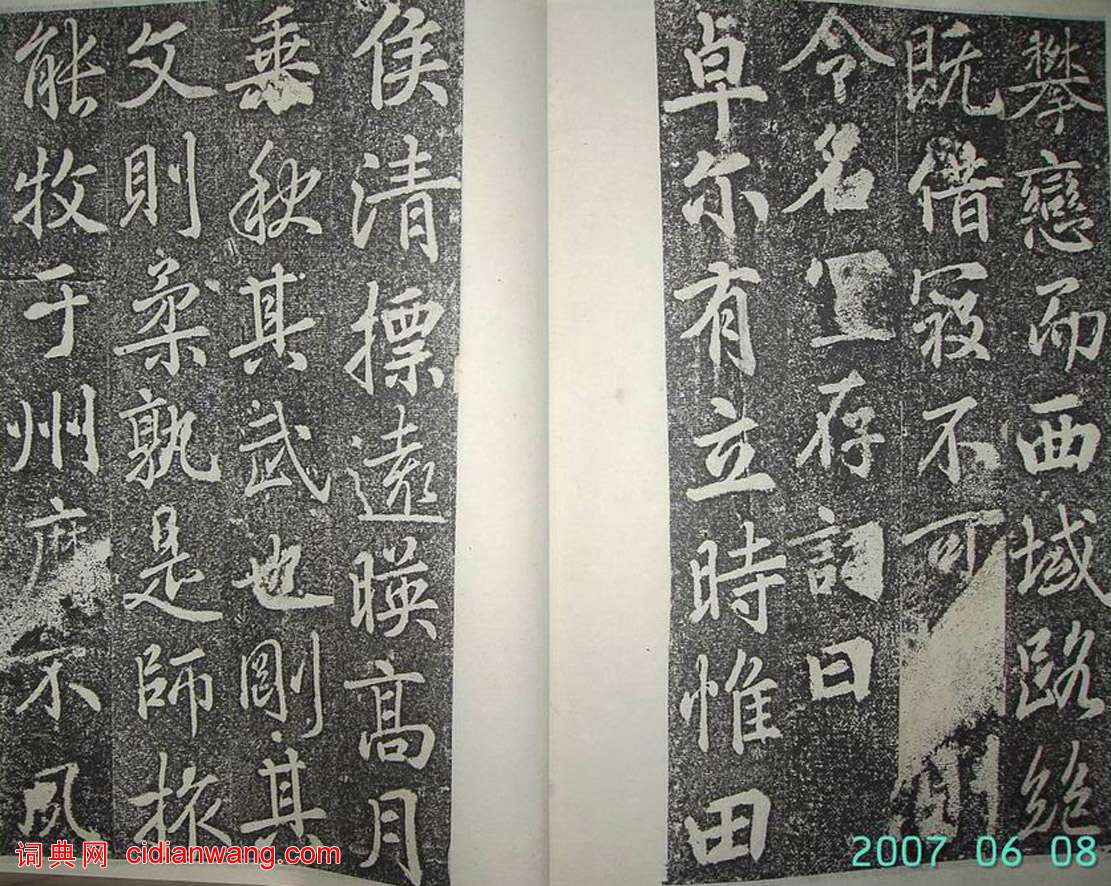 攀戀而西域路絕
既借寇不可 則
令名宜存詞曰
卓尔有立時惟田
侯清摽遠暎高月
垂秋其武也剛其
文則柔孰是師旅
能牧于州麻不夙
词典网 cidianwang.com
2007 06 08